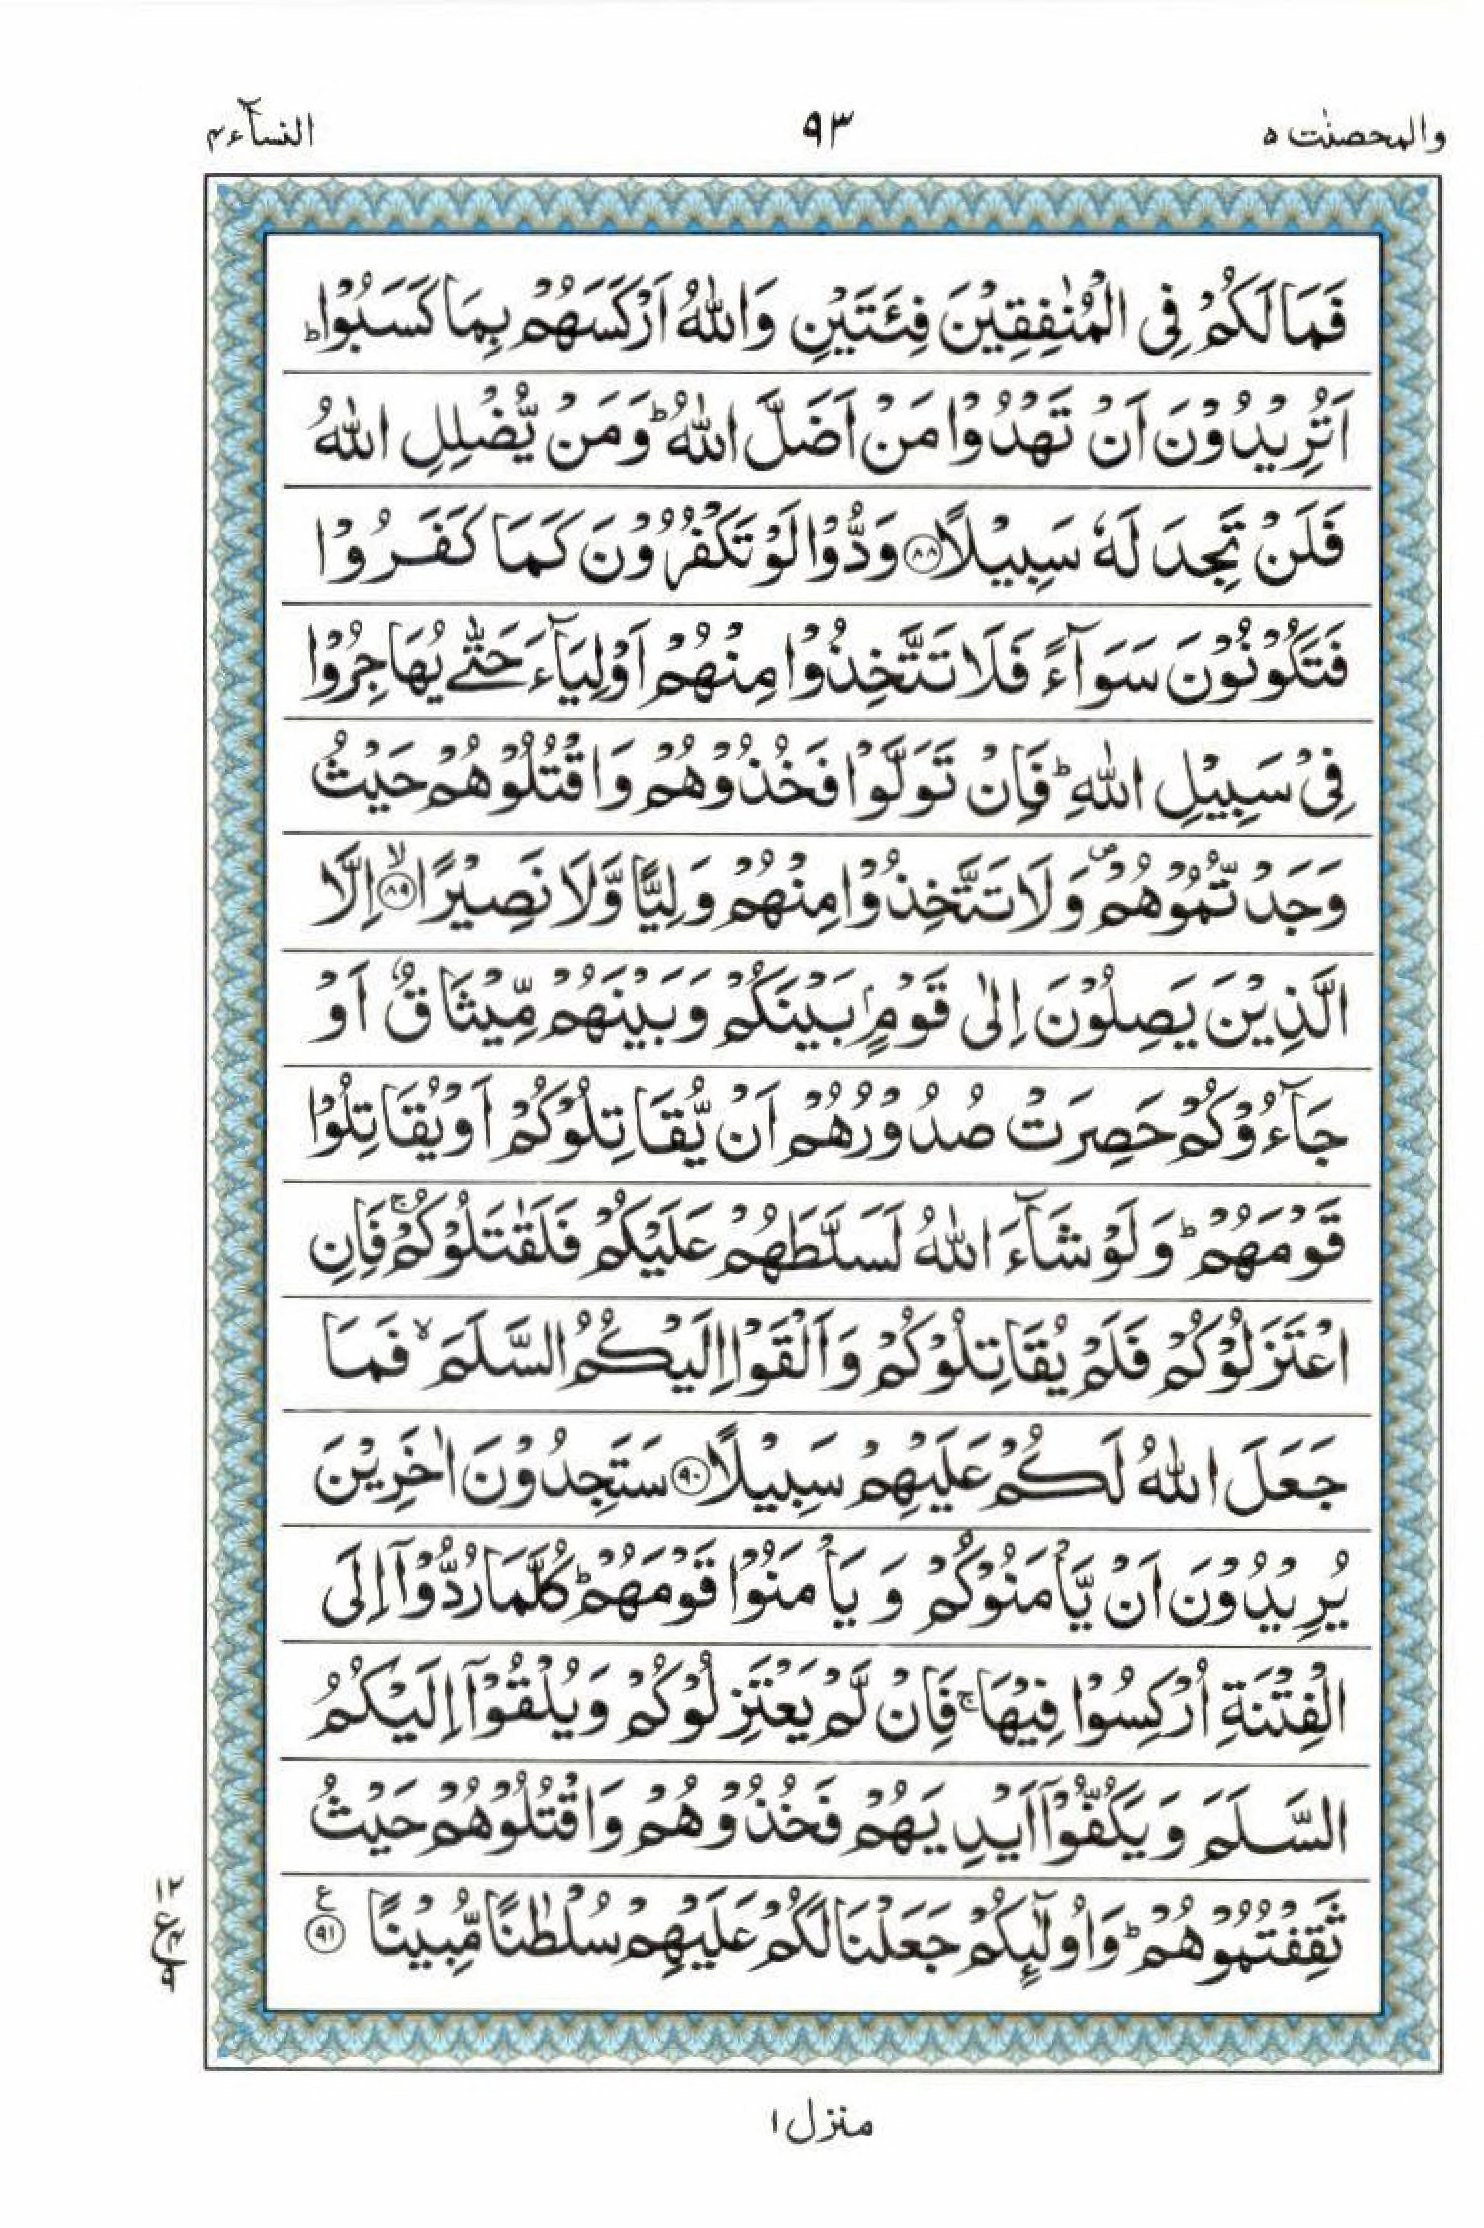 والمحصنٰت ۵ ۹۳ النسآء ۴
فَمَا لَكُمْ فِى الْمُنٰفِقِيْنَ فِئَتَيْنِ وَاللّٰهُ اَرْكَسَهُمْ بِمَا كَسَبُوْا ؕ
اَتُرِيْدُوْنَ اَنْ تَهْدُوْا مَنْ اَضَلَّ اللّٰهُ ؕ وَمَنْ يُّضْلِلِ اللّٰهُ
فَلَنْ تَجِدَ لَهٗ سَبِيْلًا ۝۸۸ وَدُّوْا لَوْ تَكْفُرُوْنَ كَمَا كَفَرُوْا
فَتَكُوْنُوْنَ سَوَآءً فَلَا تَتَّخِذُوْا مِنْهُمْ اَوْلِيَآءَ حَتّٰى يُهَاجِرُوْا
فِىْ سَبِيْلِ اللّٰهِ ؕ فَاِنْ تَوَلَّوْا فَخُذُوْهُمْ وَاقْتُلُوْهُمْ حَيْثُ
وَجَدْتُّمُوْهُمْ ۪ وَلَا تَتَّخِذُوْا مِنْهُمْ وَلِيًّا وَّلَا نَصِيْرًا ۙ۝۸۹ اِلَّا
الَّذِيْنَ يَصِلُوْنَ اِلٰى قَوْمٍۭ بَيْنَكُمْ وَبَيْنَهُمْ مِّيْثَاقٌ اَوْ
جَآءُوْكُمْ حَصِرَتْ صُدُوْرُهُمْ اَنْ يُّقَاتِلُوْكُمْ اَوْ يُقَاتِلُوْا
قَوْمَهُمْ ؕ وَلَوْ شَآءَ اللّٰهُ لَسَلَّطَهُمْ عَلَيْكُمْ فَلَقٰتَلُوْكُمْ ۚ فَاِنِ
اعْتَزَلُوْكُمْ فَلَمْ يُقَاتِلُوْكُمْ وَاَلْقَوْا اِلَيْكُمُ السَّلَمَ ۙ فَمَا
جَعَلَ اللّٰهُ لَكُمْ عَلَيْهِمْ سَبِيْلًا ۝۹۰ سَتَجِدُوْنَ اٰخَرِيْنَ
يُرِيْدُوْنَ اَنْ يَّاْمَنُوْكُمْ وَيَاْمَنُوْا قَوْمَهُمْ ؕ كُلَّمَا رُدُّوْۤا اِلَى
الْفِتْنَةِ اُرْكِسُوْا فِيْهَا ۚ فَاِنْ لَّمْ يَعْتَزِلُوْكُمْ وَيُلْقُوْۤا اِلَيْكُمُ
السَّلَمَ وَيَكُفُّوْۤا اَيْدِيَهُمْ فَخُذُوْهُمْ وَاقْتُلُوْهُمْ حَيْثُ
ثَقِفْتُمُوْهُمْ ؕ وَاُولٰٓئِكُمْ جَعَلْنَا لَكُمْ عَلَيْهِمْ سُلْطٰنًا مُّبِيْنًا ۝۹۱ ع
۱۲
ع ۴
۹
منزل ۱